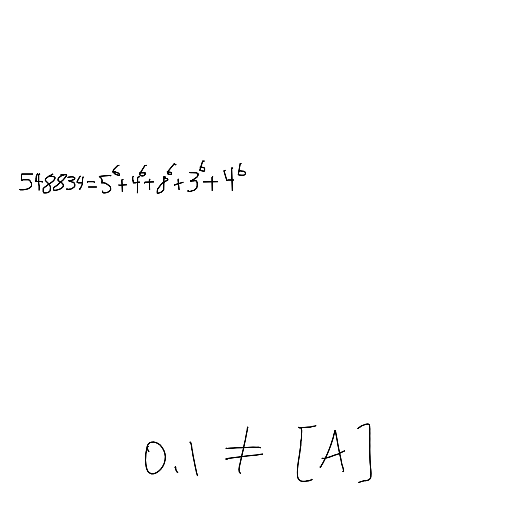 548834=5⁶+4⁶+8⁶+3⁶+4⁶
0.1 ≠ [A]